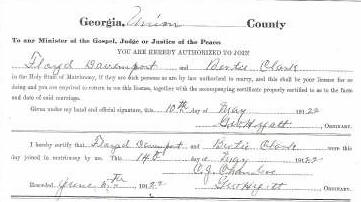 Georgia, Union County
To any Minister of the Gospel, Judge or Justice of the Peace:
YOU ARE HEREBY AUTHORIZED TO JOIN
Floyd Davenport and Bertie Clark
in the Holy State of Matrimony, if they are such persons as are by law authorized to marry, and this shall be your license for so
doing and you are required to return to me this license, together with the accompanying certificate properly certified as to the facts
and date of said marriage.
Given under my hand and official signature, this 10th day of May 1922
Geo Hyatt , ORDINARY.
I hereby certify that Floyd Davenport and Bertie Clark were
day joined in matrimony by me. This 14th day of May 1922
C.J.
Recorded June 6th 1922 Geo Hyatt , ORDINARY.